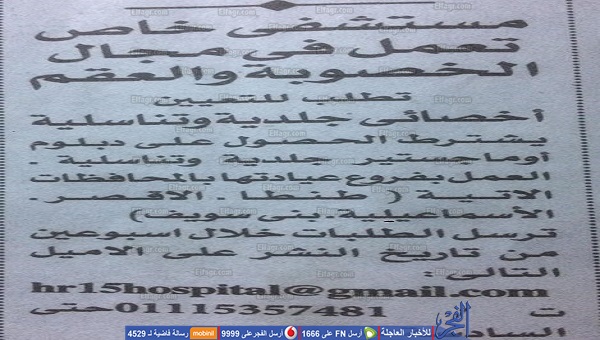 مستشفى خاص
تعمل فى مجال
الخصوبة والعقم
تطلب للتعيين
أخصائى جلدية وتناسلية
يشترط الحصول على دبلوم
أو ماجستير جلدية وتناسلية .
العمل بفروع عيادتها بالمحافظات
الاتية ( طنطا . الاقصر .
الأسماعيلية . بنى سويف )
ترسل الطلبات خلال اسبوعين
من تاريخ النشر على الاميل
التالى :
hr15hospital@gmail.com
ت 01115357481 حتى
الفجر للأخبار العاجلة أرسل FN على 1666 أرسل الفجر على 9999 mobinil رسالة فاضية لـ 4529